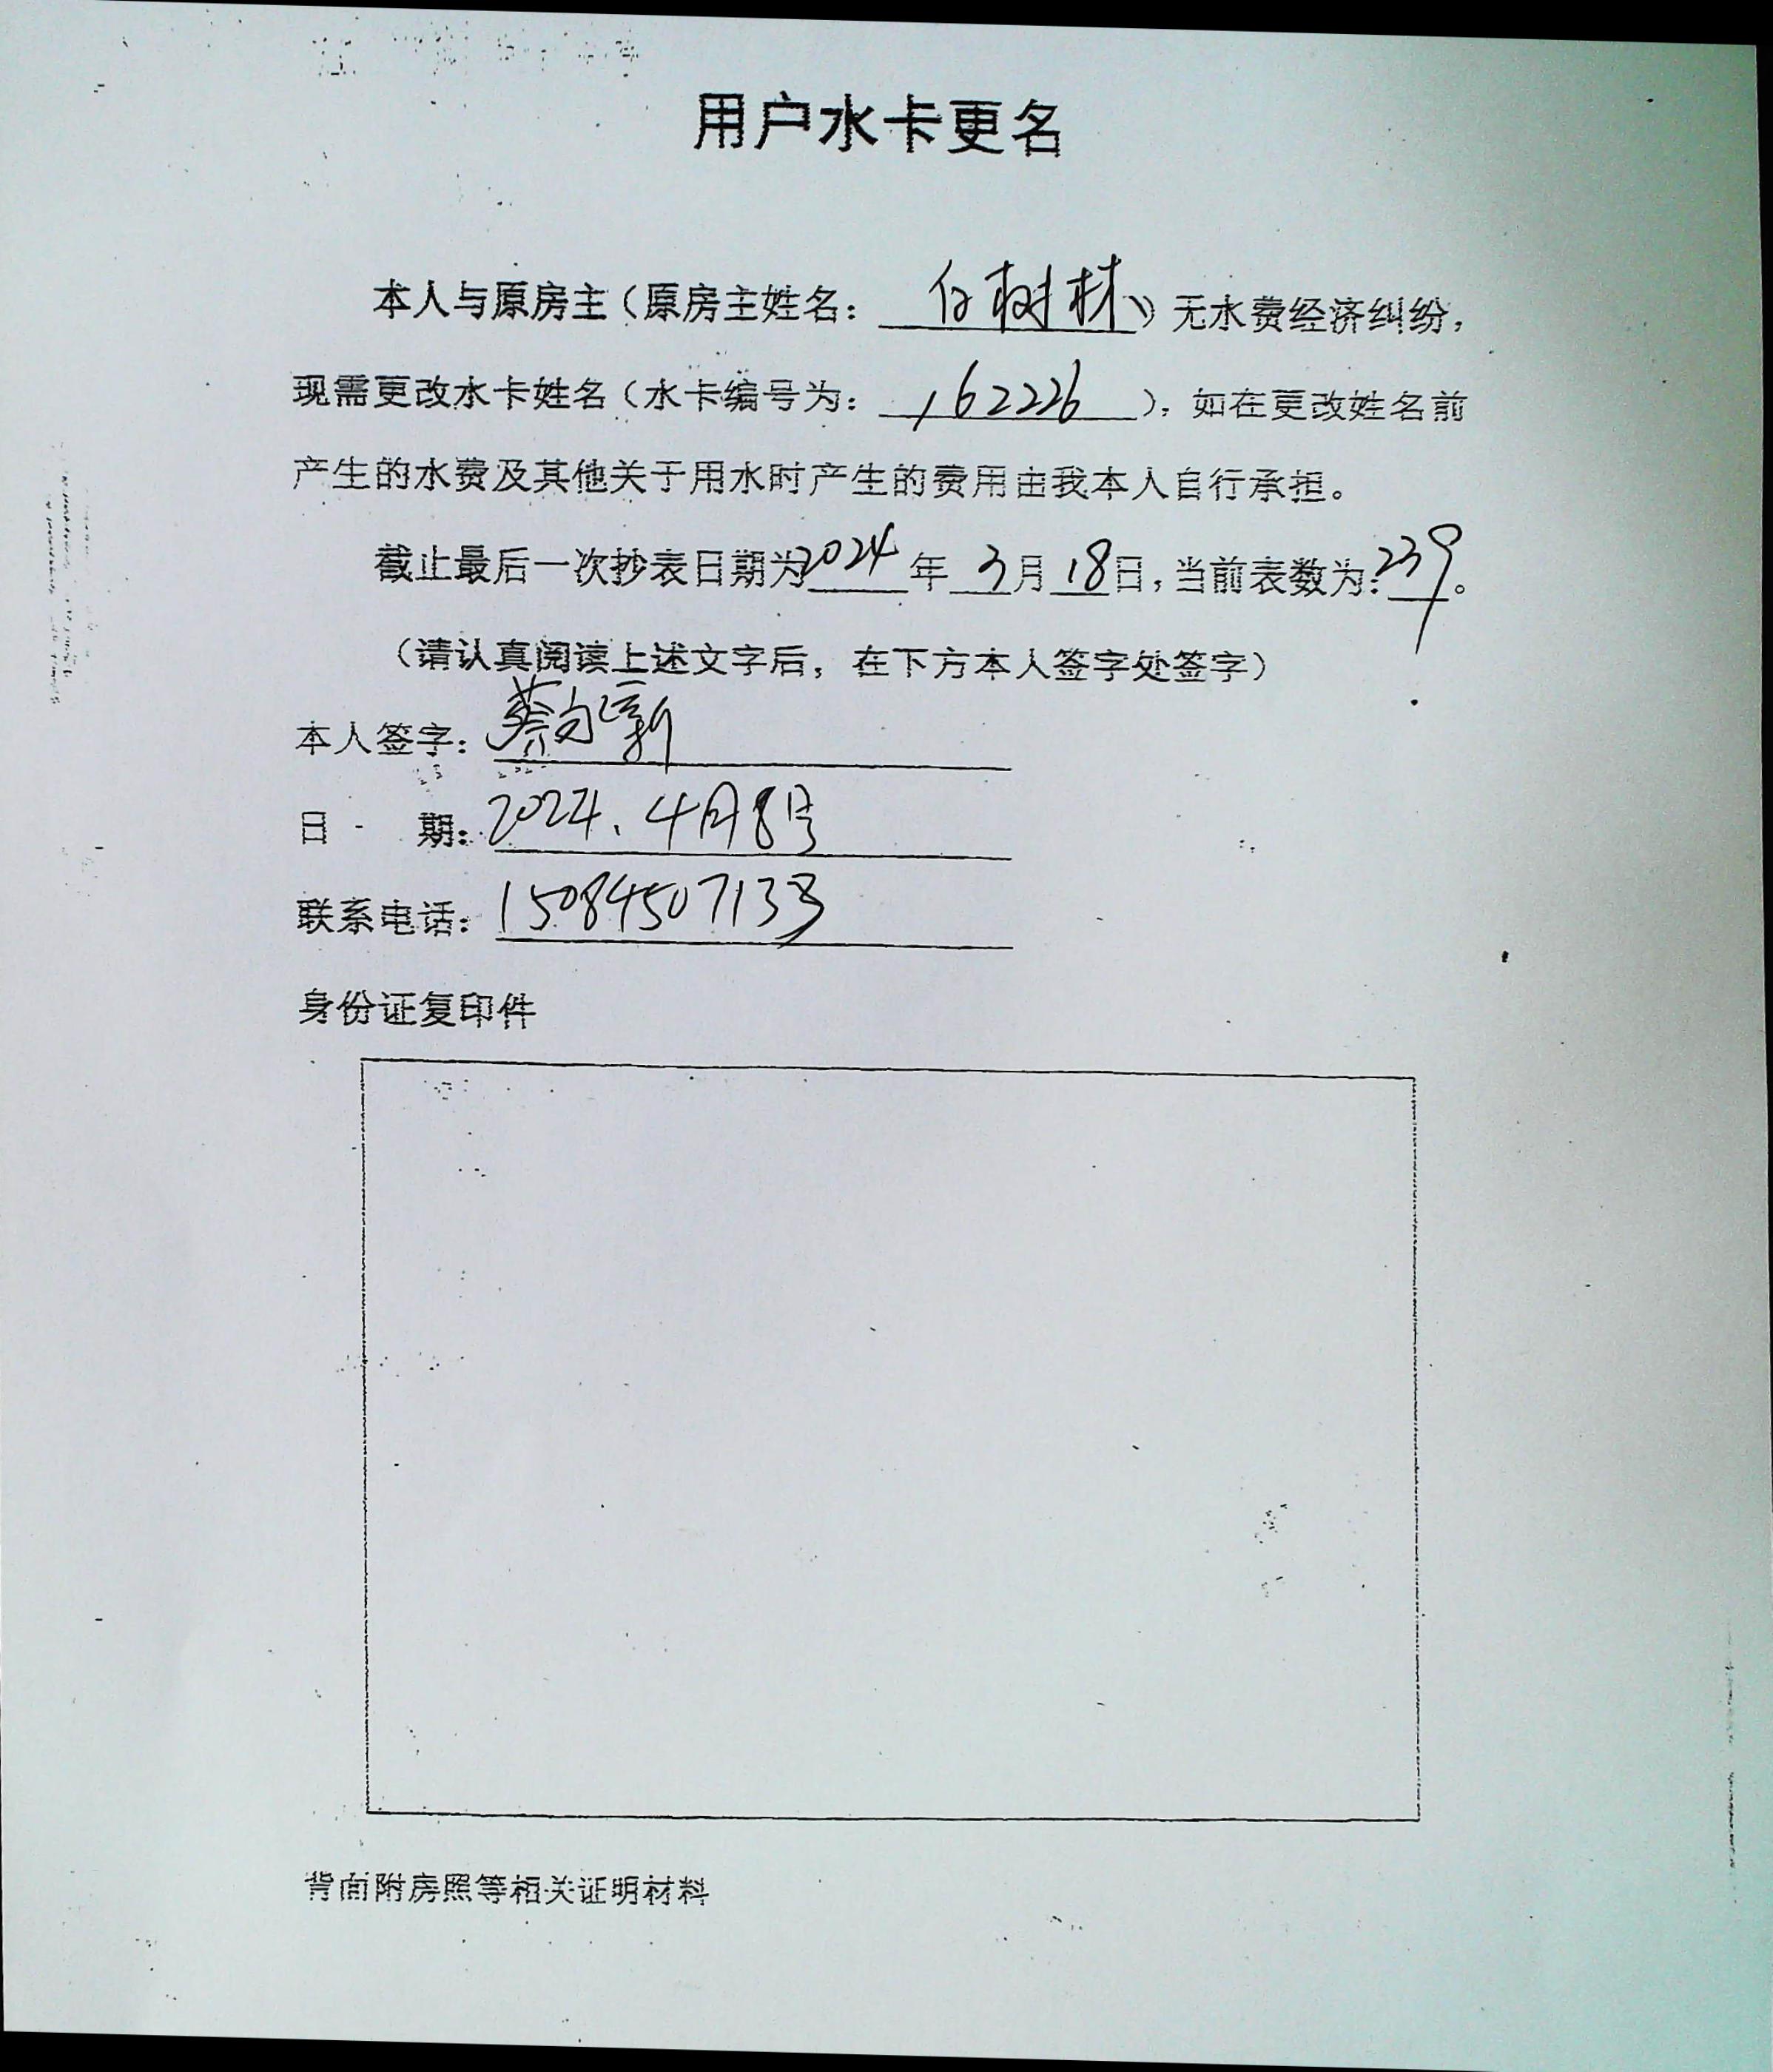 用户水卡更名
本人与原房主（原房主姓名：白树林）无水费经济纠纷，
现需更改水卡姓名（水卡编号为：162226），如在更改姓名前
产生的水费及其他关于用水时产生的费用由我本人自行承担。
截止最后一次抄表日期为2024年3月18日，当前表数为：239。
（请认真阅读上述文字后，在下方本人签字处签字）
本人签字：蔡
日 期：2024.4月8号
联系电话：15084507133
身份证复印件
背面附房照等相关证明材料